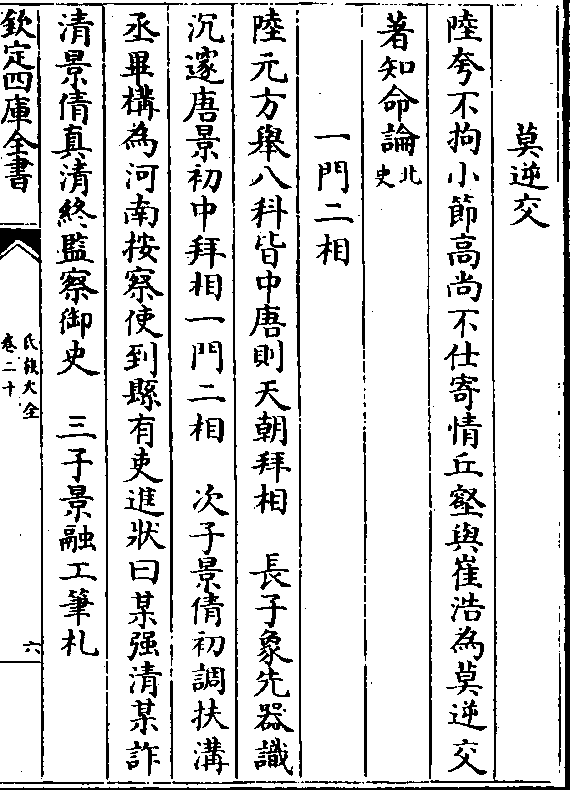 莫逆交
陸夸不拘小節高尚不仕寄情丘壑與崔浩為莫逆交
著知命論北史
一門二相
陸元方舉八科皆中唐則天朝拜相　長子象先器識
沉邃唐景初中拜相一門二相　次子景倩初調扶溝
丞畢構為河南按察使到縣有吏進狀曰某强清某詐
清景倩真清終監察御史　三子景融工筆札
欽定四庫全書
氏族大全
卷二十
六